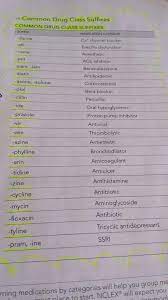 Common Drug Class Suffixes
COMMON DRUG CLASS SUFFIXES
-dipine Ca+ channel blocker
-afil Erectile dysfunction
-caine Anesthetic
-pril ACE inhibitor
-pam, -lam Benzodiazepine
-statin Antilipidemic
-asone, -solone Corticosteroid
-olol Beta blocker
-cillin Penicillin
-ide Oral hypoglycemic
-prazole Proton-pump inhibitor
-vir Antiviral
-ase Thrombolytic
-azine Antiemetic
-phylline Bronchodilator
-arin Anticoagulant
-tidine Antiulcer
-zine Antihistamine
-cycline Antibiotic
-mycin Aminoglycoside
-floxacin Antibiotic
-tyline Tricyclic antidepressant
-pram, -ine SSRI
ming medications by categories will help you group
place to start. NCLEX® will expect you